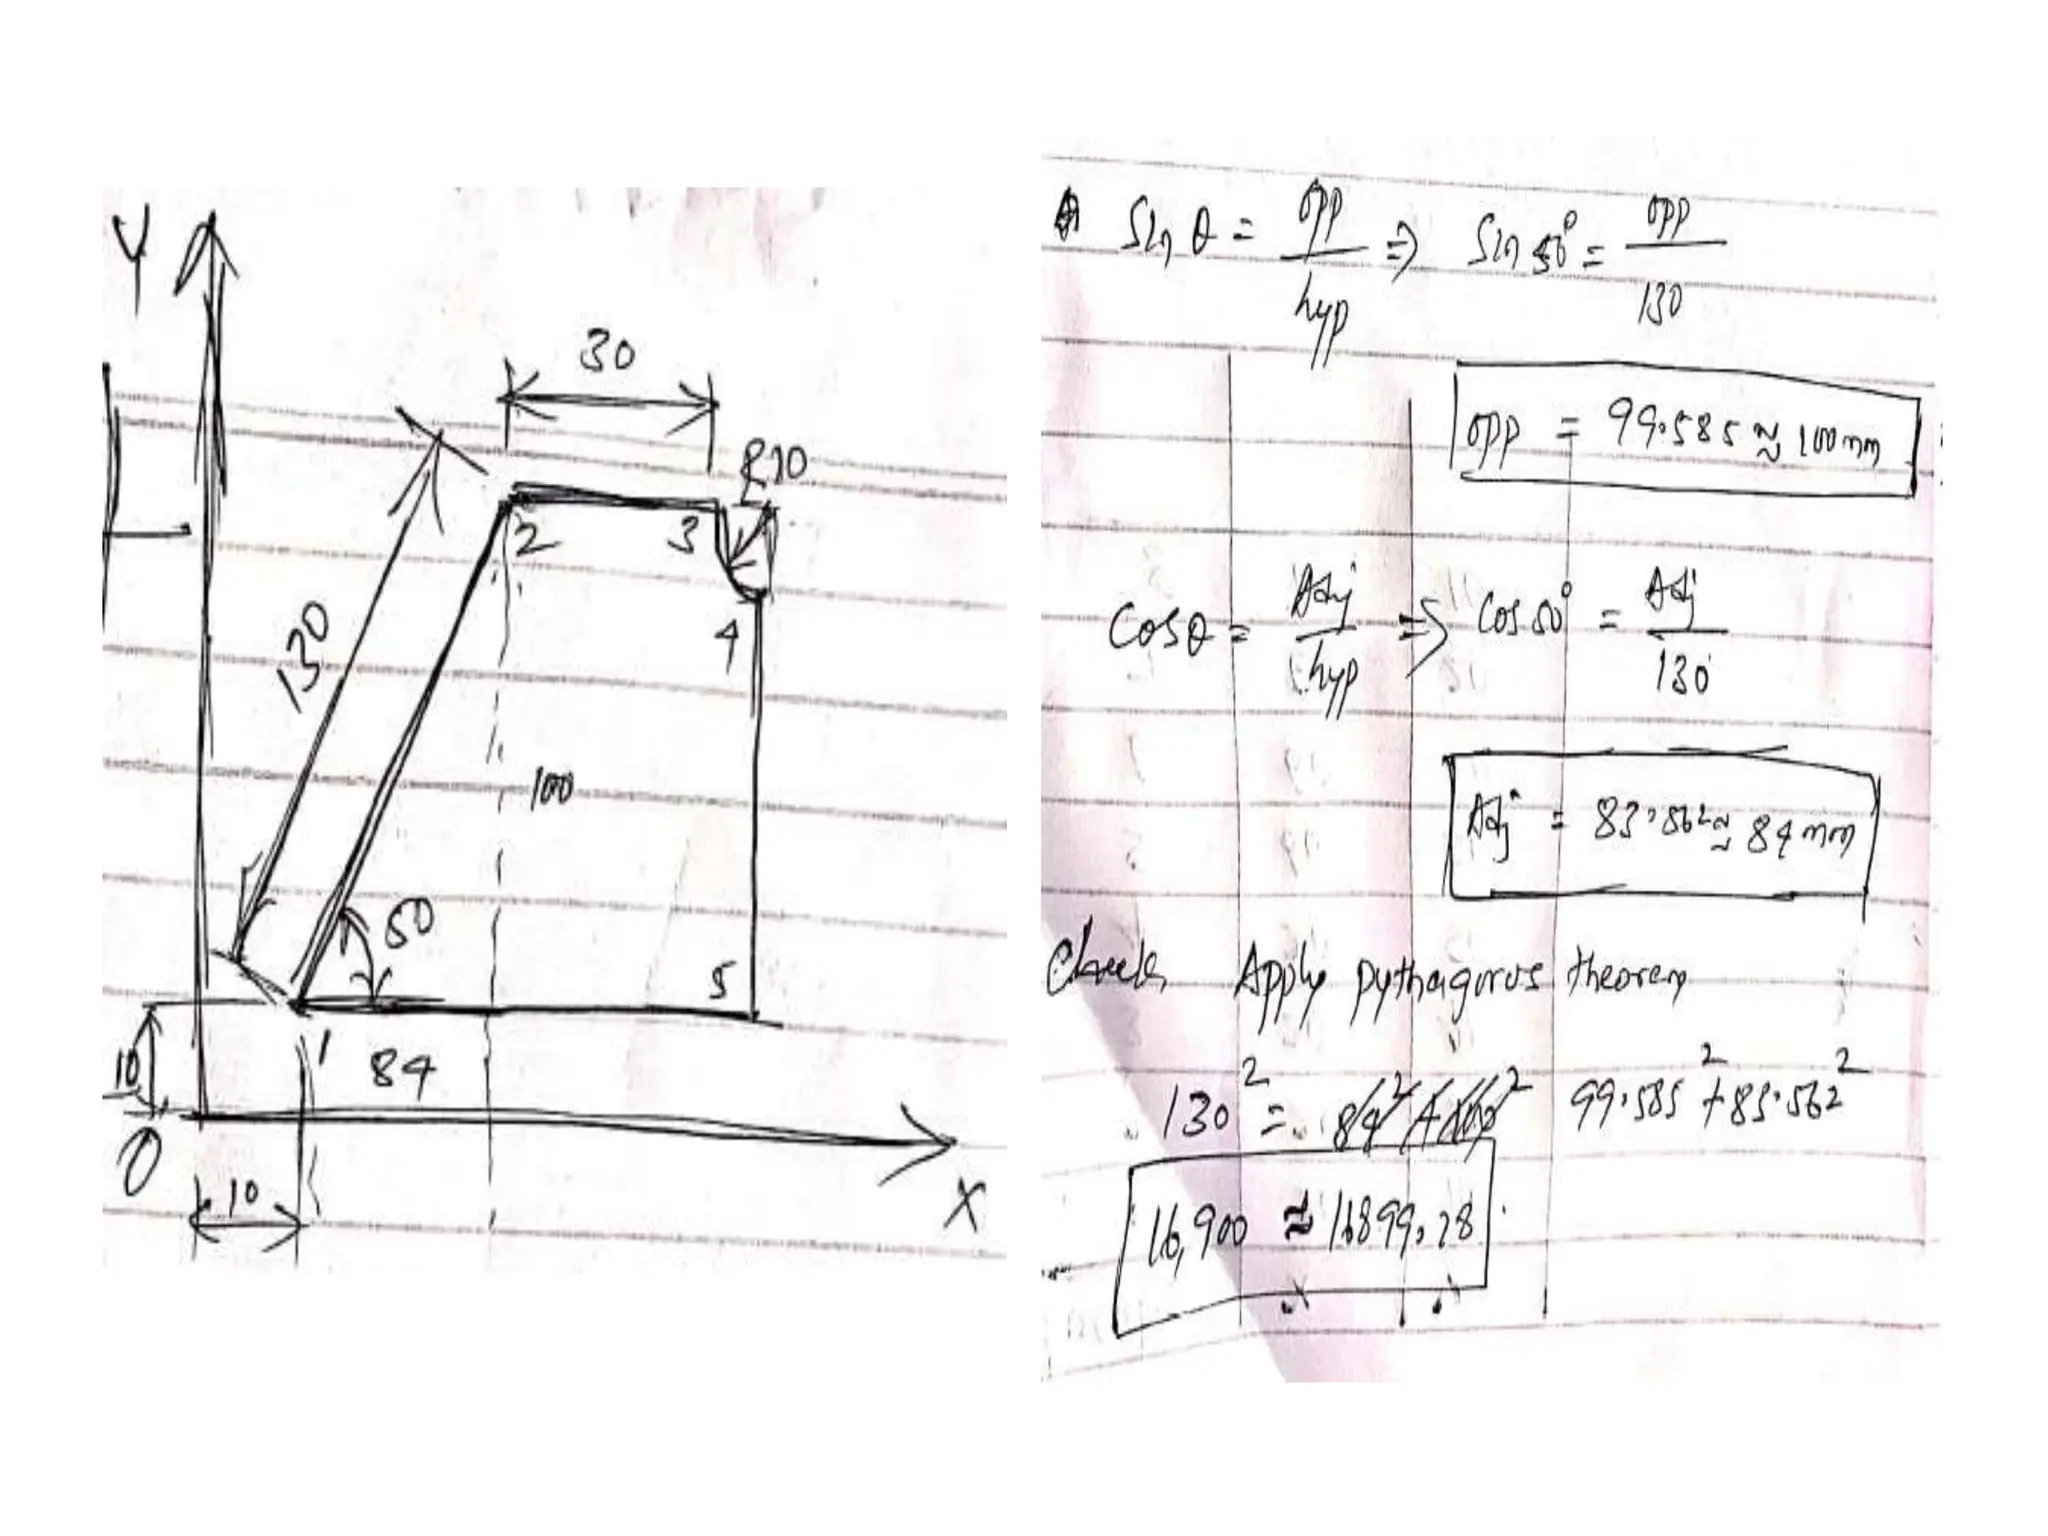 Y
30
R10
2
3
130
4
100
50
5
10
1
84
O
10
X
Sin θ = opp/hyp ⇒ Sin 50° = opp/130
opp = 99.585 ≈ 100mm
Cos θ = Adj/hyp ⇒ Cos 50° = Adj/130
Adj = 83.562 ≈ 84 mm
Check Apply pythagorus theorem
130² = 99.585² + 83.562²
16,900 ≈ 16899.78